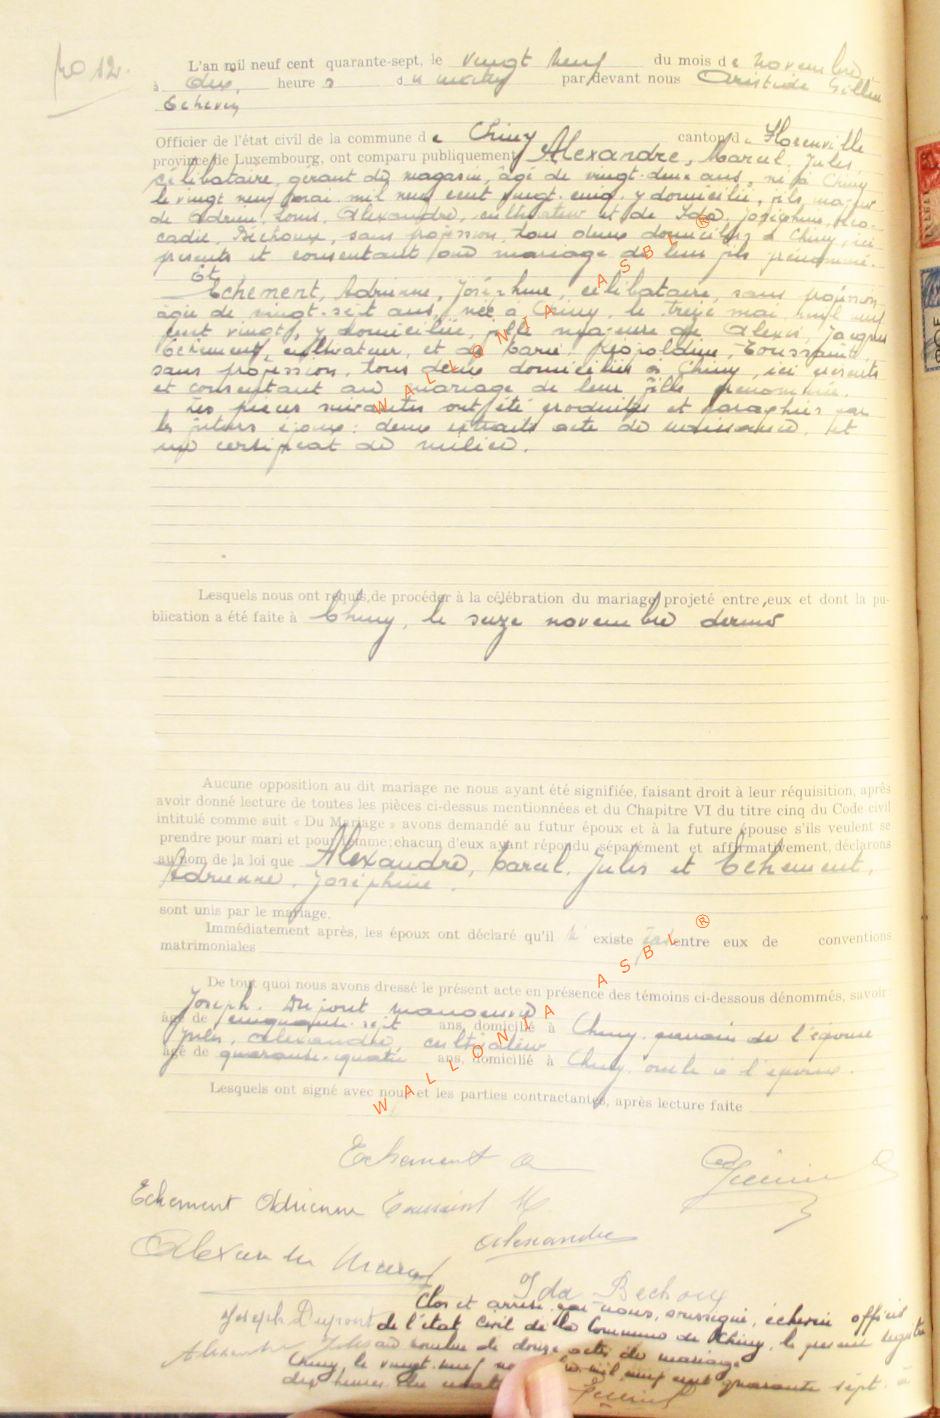 No 12.
L'an mil neuf cent quarante-sept, le vingt neuf du mois de novembre
à dix heures du matin par devant nous Aristide Gillin
Echevin
Officier de l'état civil de la commune de Chiny canton de Florenville
province de Luxembourg, ont comparu publiquement Alexandre, Marcel, Jules
célibataire, gérant de magasin, âgé de vingt-deux ans, né à Chiny
le vingt neuf mai mil neuf cent vingt-cinq, y domicilié, fils majeur
de Adrien, Louis, Alexandre, cultivateur et de Ida, Joséphine, Léo-
cadie, Béchoux, sans profession, tous deux domiciliés à Chiny, ici
présents et consentant au mariage de leur fils prénommé.
Et
Echement, Adrienne, Joséphine, célibataire, sans profession,
âgée de vingt-sept ans, née à Chiny, le treize mai mil neuf
cent vingt, y domiciliée, fille majeure de Alexis, Jacques
Echement, cultivateur, et de Marie, Léopoldine, Toussaint,
sans profession, tous deux domiciliés à Chiny, ici présents
et consentant au mariage de leur fille prénommée.
Les pièces suivantes ont été produites et paraphées par
les futurs époux: deux extraits acte de naissance, et
un certificat de milice.
Lesquels nous ont requis de procéder à la célébration du mariage projeté entre eux et dont la pu-
blication a été faite à Chiny, le seize novembre dernier
Aucune opposition au dit mariage ne nous ayant été signifiée, faisant droit à leur réquisition, après
avoir donné lecture de toutes les pièces ci-dessus mentionnées et du Chapitre VI du titre cinq du Code civil
intitulé comme suit « Du Mariage » avons demandé au futur époux et à la future épouse s'ils veulent se
prendre pour mari et pour femme; chacun d'eux ayant répondu séparément et affirmativement, déclarons
au nom de la loi que Alexandre, Marcel, Jules et Echement,
Adrienne, Joséphine.
sont unis par le mariage.
Immédiatement après, les époux ont déclaré qu'il n' existe pas entre eux de conventions
matrimoniales
De tout quoi nous avons dressé le présent acte en présence des témoins ci-dessous dénommés, savoir
Joseph Dupont manoeuvre
âgé de cinquante-sept ans, domicilié à Chiny, parrain de l'épouse
Jules, Alexandre, cultivateur
âgé de quarante-quatre ans, domicilié à Chiny, oncle à l'époux.
Lesquels ont signé avec nous et les parties contractantes, après lecture faite
Echement A
Echement Adrienne Toussaint M.
Alexandre Marcel
Alexandre
Ida Bechoux
Joseph Dupont
Alexandre Jules
Clos et arrêté par nous, soussigné, échevin officier
de l'état civil de la Commune de Chiny, le présent registre
au nombre de douze actes de mariage
Chiny, le vingt-neuf mil neuf cent quarante sept à
dix heures du
WALLONIA ASBL ®
WALLONIA ASBL ®